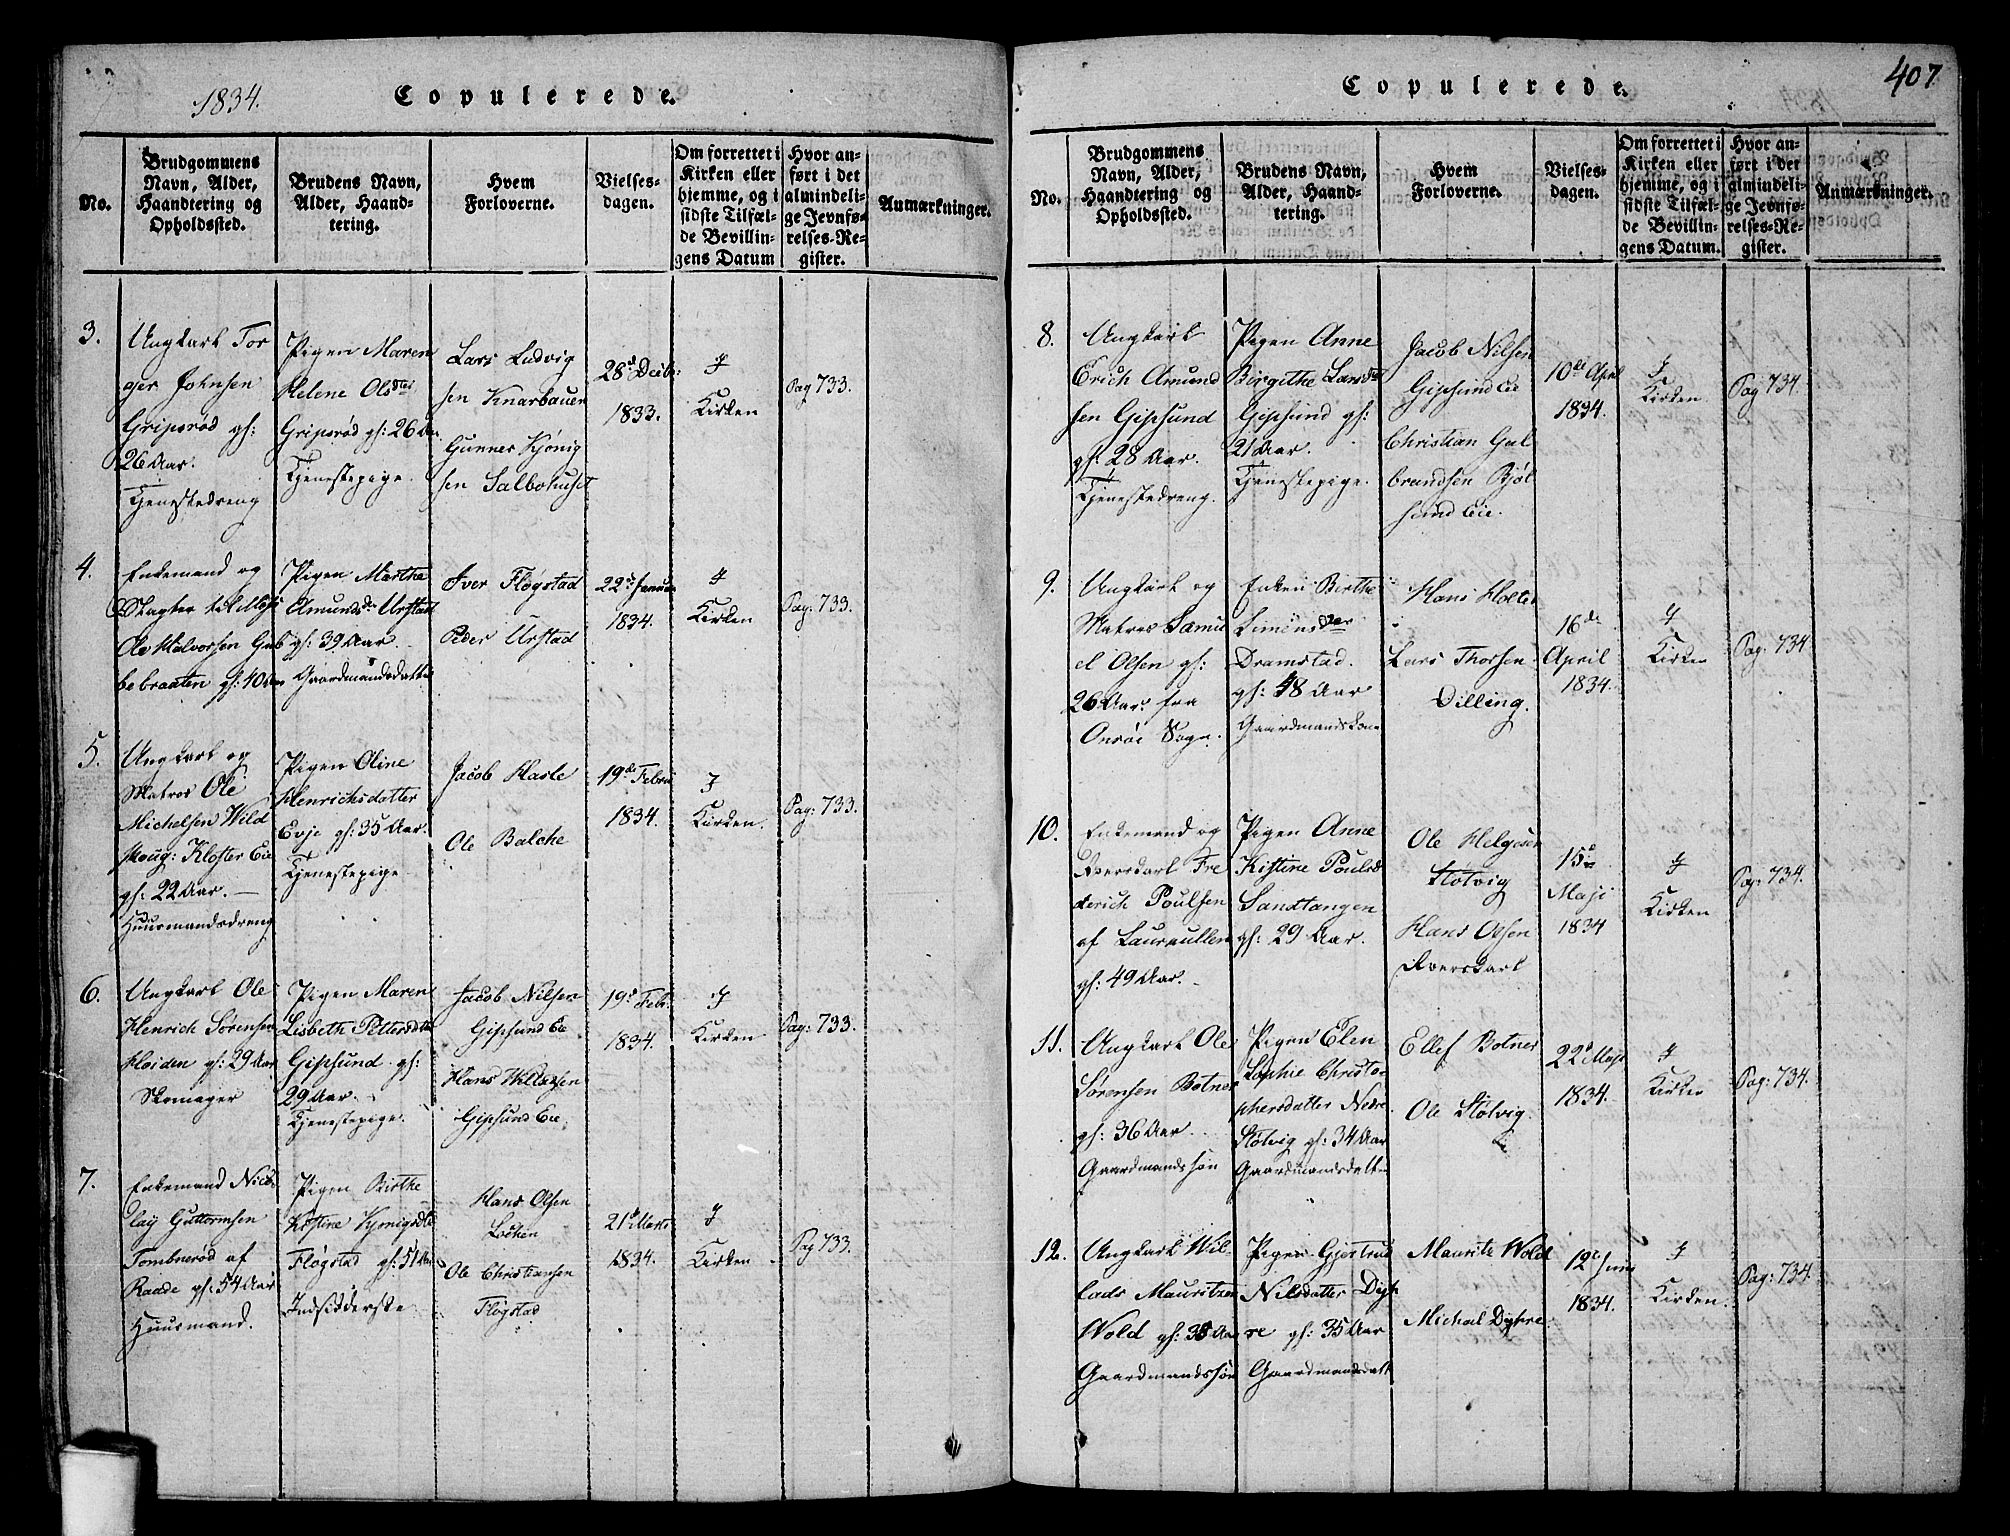 1834.
Copulerede.
No.
Brudgommens
Navn, Alder,
Haandtering og
Opholdssted.
Brudens Navn,
Alder, Haand-
tering.
Hvem
Forloverne.
Vielses-
dagen.
Om forrettet i
Kirken eller
hjemme, og i
sidste Tilfæl-
de Bevillin-
gens Datum
Hvor an-
ført i det
almindeli-
ge Jevnfø-
relses-Re-
gister.
Anmærkninger.
3.
Ungkarl Tor
ger Johnsen
Gripsrød gl:
26 Aar.
Tjenestedreng
Pigen Maren
Helene Olsdtr
Gripsrød gl: 26 Aar
Tjenestepige.
Lars Ludvig
sen Knarbauer
Gunner Kjønig
sen Salbohuset
28d Decbr:
1833.
I
Kirken
Pag 733.
4.
Enkemand og
Slagter
Ole Halvorsen Gub
bebraaten gl: 40 Aar
Pigen Marthe
Amundsdtr Urstad
gl: 39 Aar.
Gaardmandsdatter
Iver Fløgstad
Peder Urstad
22de Januar
1834.
I
Kirken
Pag: 733.
5.
Ungkarl og
Matros Ole
Michelsen Wild
Houg: Kloster Eie
gl: 22 Aar.
Huusmandsdreng
Pigen Oline
Henrichsdatter
Evje gl: 35 Aar.
Tjenestepige
Jacob Hasle
Ole Balche
19de Febru
1834.
I
Kirken.
Pag: 733.
6.
Ungkarl Ole
Henrich Sørensen
Hoiden gl: 29 Aar
Skomager
Pigen Maren
Lisbeth Pettersdatter
Gipsund gl:
29 Aar.
Tjenestepige.
Jacob Nilsen
Gipsund Eie
Hans Willasen
Gipsund Eie.
19d Febr.
1834.
I
Kirken
Pag: 733.
7.
Enkemand Nico-
lay Guttormsen
Tombnerød af
Raade gl: 54 Aar
Huusmand.
Pigen Birthe
Kistine Kjønigsdtr
Fløgstad gl: 51 Aar
Indsidderske
Hans Olsen
Løken
Ole Christiansen
Fløgstad
21d Marts
1834.
I
Kirken
Pag 733.
407
Copulerede.
No.
Brudgommens
Navn, Alder,
Haandtering og
Opholdssted.
Brudens Navn,
Alder, Haand-
tering.
Hvem
Forloverne.
Vielses-
dagen.
Om forrettet i
Kirken eller
hjemme, og i
sidste Tilfæl-
de Bevillin-
gens Datum.
Hvor an-
ført i det
almindeli-
ge Jevnfø-
relses-Re-
gister.
Anmærkninger.
8.
Ungkarl
Erich Amund
sen Gipsund
gl: 28 Aar.
Tjenestedreng.
Pigen Anne
Birgithe Larsdtr
Gipsund gl:
21 Aar.
Tjenestepige.
Jacob Nilsen
Gipsund Eie
Christian Gul
brandsen Bjøl
sund Eie.
10de April
1834.
I
Kirken
Pag 734.
9.
Ungkarl og
Matros Samu
el Olsen gl:
26 Aar. fra
Onsøi Sogn.
Enken Birthe
Simonsdtr
Dramstad.
gl: 48 Aar
Gaardmandskone
Hans Holter
Lars Thorsen
Dilling.
16de
April
1834.
I
Kirken
Pag: 734
10.
Enkemand og
Qværnkarl Fre
derich Poulsen
af Laurkullen
gl: 49 Aar.
Pigen Anne
Kistine Poulsd
Sandtangen
gl: 29 Aar.
Ole Helgesen
Støtvig
Hans Olsen
Qværnkarl
15de
Maji
1834
I
Kirken
Pag: 734.
11.
Ungkarl Ole
Sørensen Botner
gl: 36 Aar.
Gaardmandssøn
Pigen Elen
Sophie Christo-
phersdatter Nedre
Støtvig gl: 34 Aar
Gaardmandsdatter
Ellef Botner
Ole Støtvig.
22d Maji
1834.
I
Kirken
Pag: 734.
12.
Ungkarl Wil-
lads Mauritzen
Wold gl: 35 Aar
Gaardmandssøn
Pigen Gjertrud
Nilsdatter Dyh
re gl: 35 Aar
Gaardmandsdatt
Mauritz Wold
Michael Dyhre
12te Juni
1834.
I
Kirken.
Pag: 734.